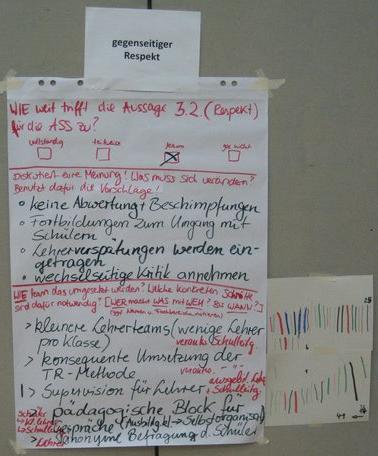 gegenseitiger
Respekt
WIE weit trifft die Aussage 3.2. (Respekt)
für die ASS zu?
vollständig teilweise kaum gar nicht
Diskutiert eure Meinung! Was muss sich verändern?
Benutzt dafür die Vorschläge!
• keine Abwertung + Beschimpfungen
• Fortbildungen zum Umgang mit
Schülern
• Lehrerverspätungen werden ein-
getragen
• wechselseitige Kritik annehmen
WIE kann das umgesetzt werden? Welche konkreten Schritte
sind dafür notwendig? [WER macht WAS mit WEM? Bis WANN?]
> kleinere Lehrerteams (wenige Lehrer
pro Klasse)
> konsequente Umsetzung der
TR-Methode
1 > Supervision für Lehrer
> pädagogische Block für
Gespräche
→ Selbstorganisa
> anonyme Befragung d. Schüler
Lehrer